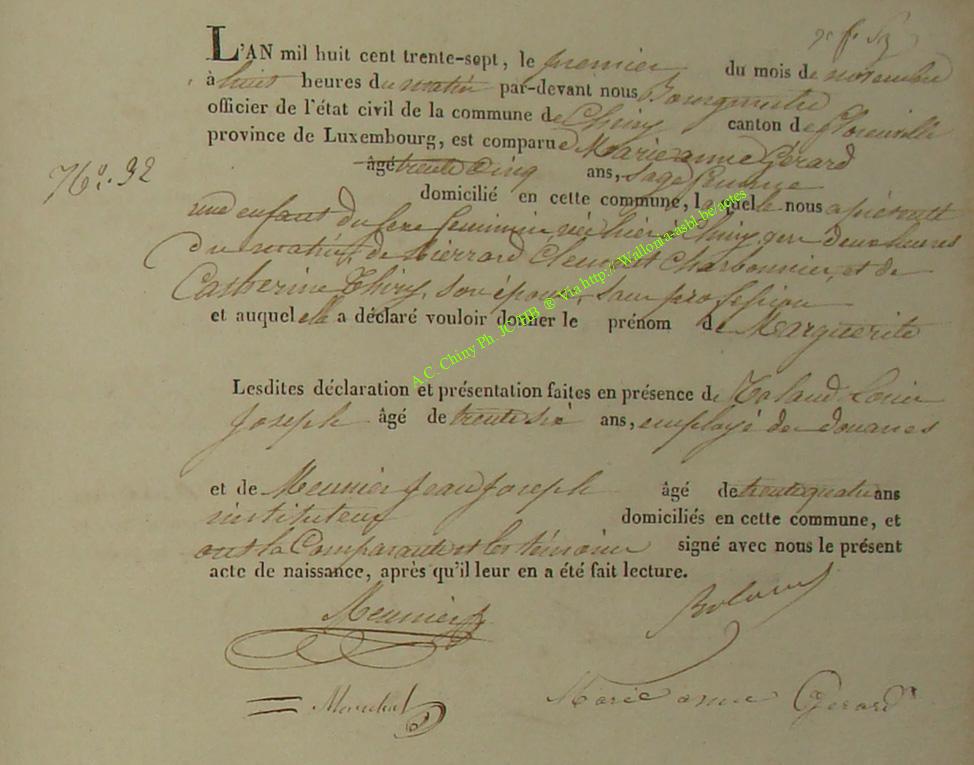 L'AN mil huit cent trente-sept, le premier du mois de novembre
à huit heures du matin par-devant nous Bourgmestre
officier de l'état civil de la commune de Chiny canton de Florenville
province de Luxembourg, est comparue Marie anne Gérard
N°. 32
âgé trente cinq ans, Sage femme
domicilié en cette commune, laquelle nous a présenté
une enfant du sexe feminin née hier à Chiny, deux heures
du matin, de Pierrard Charbonnier, et de
Catherine Thiry, son épouse, sans profession
et auquel elle a déclaré vouloir donner le prénom de Marguerite
Lesdites déclaration et présentation faites en présence de Roland Louis
Joseph âgé de trente six ans, employé des douanes
et de Meunier Jean Joseph âgé de trente quatre ans
instituteur domiciliés en cette commune, et
ont la Comparante et les témoins signé avec nous le présent
acte de naissance, après qu'il leur en a été fait lecture.
Meunier Roland
Marechal Marie anne Gerard
A.C. Chiny Ph. JC HB ® Via http://Wallonia-asbl.be/actes